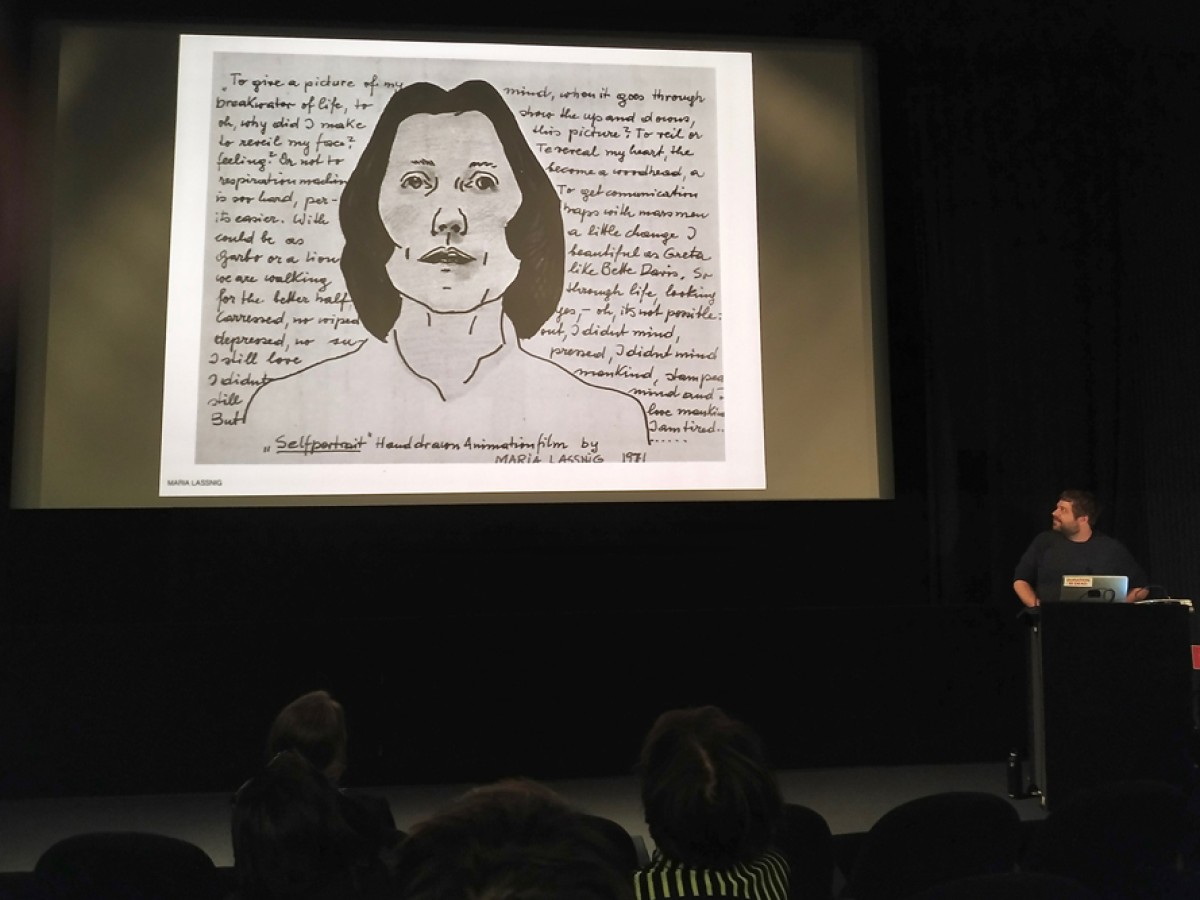 „To give a picture of my mind, when it goes through
breakwater of life, to show the up and downs,
oh, why did I make this picture? To veil or
to reveil my face? To reveal my heart, the
feeling? Or not to become a woodhead, a
respiration machin To get comunication
is soo hard, per- haps with marsmen
its easier. With a little change I
could be as beautiful as Greta
Garbo or a Lion like Bette Davis. So
we are walking through life, looking
for the better half, yes, – oh, its not possible:
Carressed, no wiped out, I didnt mind,
depressed, no su pressed, I didnt mind
I still love mankind, stamped
I didnt mind and
still love mankind
But I am tired......
„Selfportrait" Handdrawn Animationfilm by
MARIA LASSNIG 1971
MARIA LASSNIG